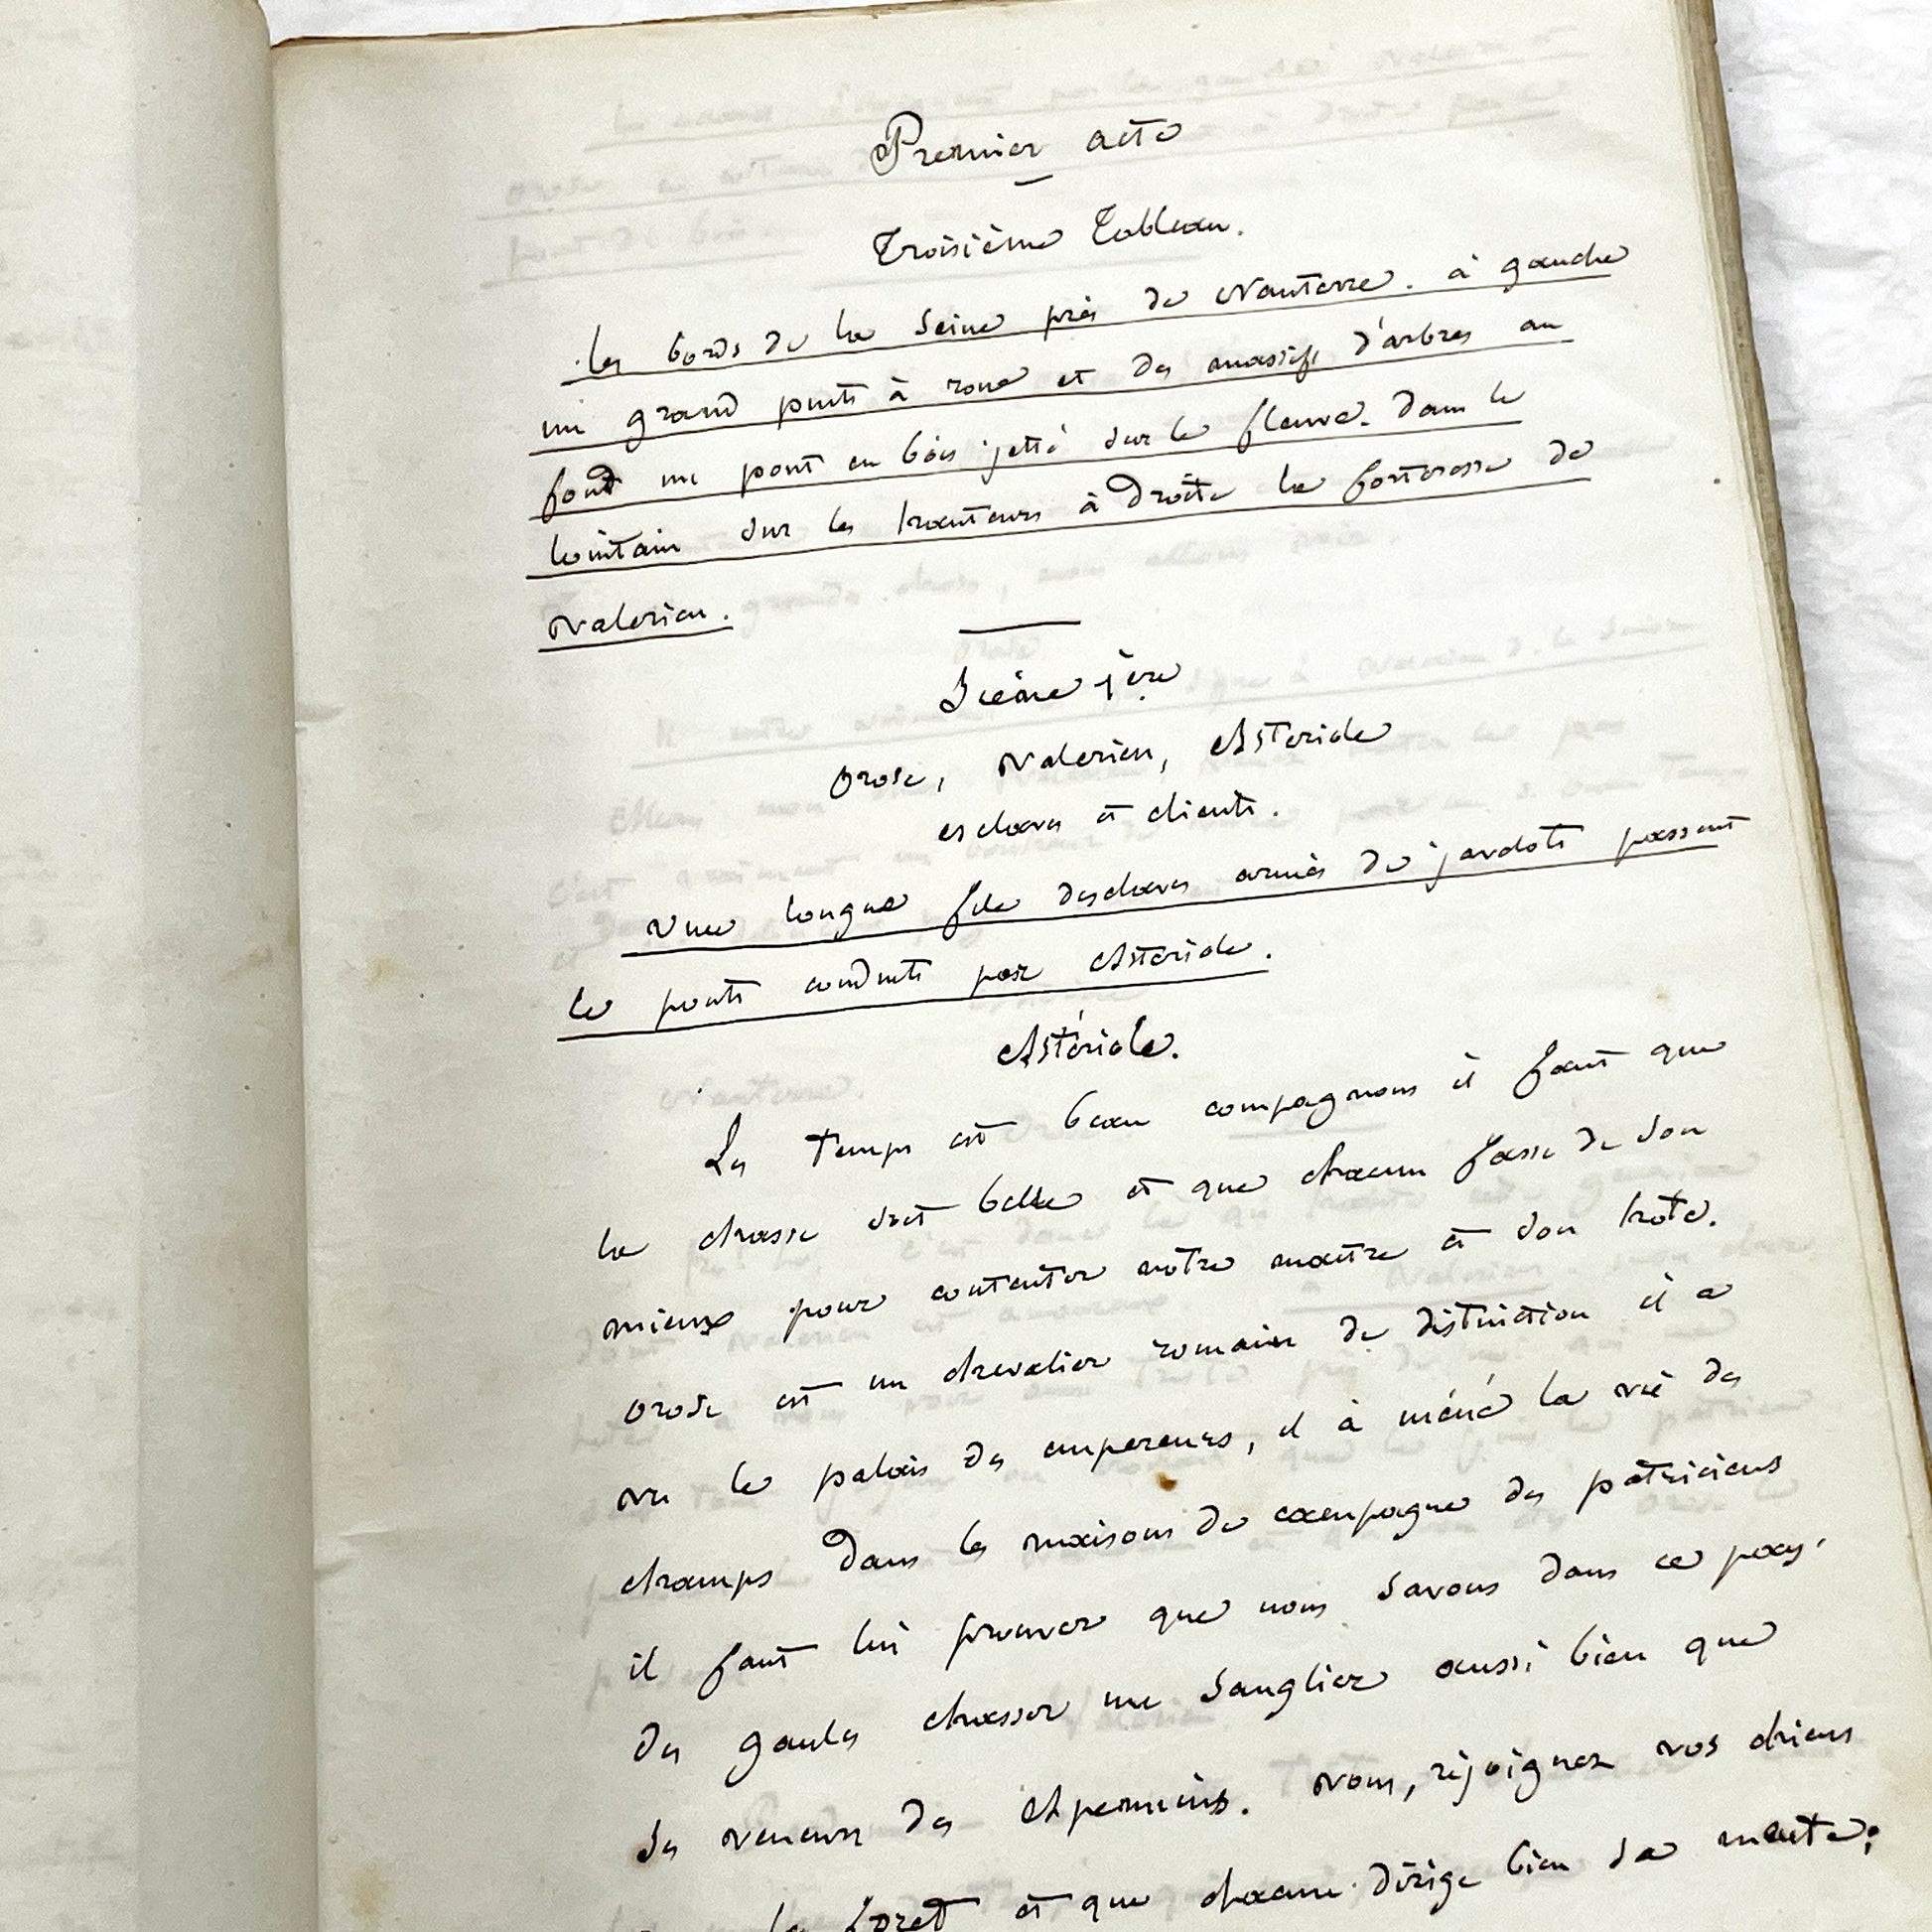 Premier acte
Troisième Tableau.
Les bords de la Seine près de Nanterre. à gauche
un grand puits à roue et des massifs d'arbres au
fond un pont en bois jetté sur le fleuve. Dans le
lointain sur les hauteurs à droite la forteresse de
Valerien.
Scène 1ère
Orose, Valerien, Asteriole
esclaves et clients.
Une longue file desclaves armés de javelots passent
le ponts conduits par Asteriole.
Astériole.
Le Temps est beau compagnons il faut que
la chasse soit belle et que chacun fasse de son
mieux pour contenter notre maitre et son hote.
Orose est un chevalier romain de distinction il a
vu le palais des empereurs, il à méné la vie des
champs dans les maisons de campagne des patriciens
il faut lui prouver que nous savons dans ce pays.
des gaules chasser un sanglier aussi bien que
les veneurs des Apennins. Vous, réjoignez vos chiens
la foret et que chacun dirige bien sa meute;